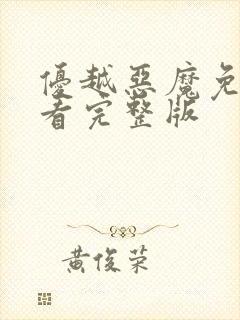 優越惡魔免
看完整版
黃俊荣